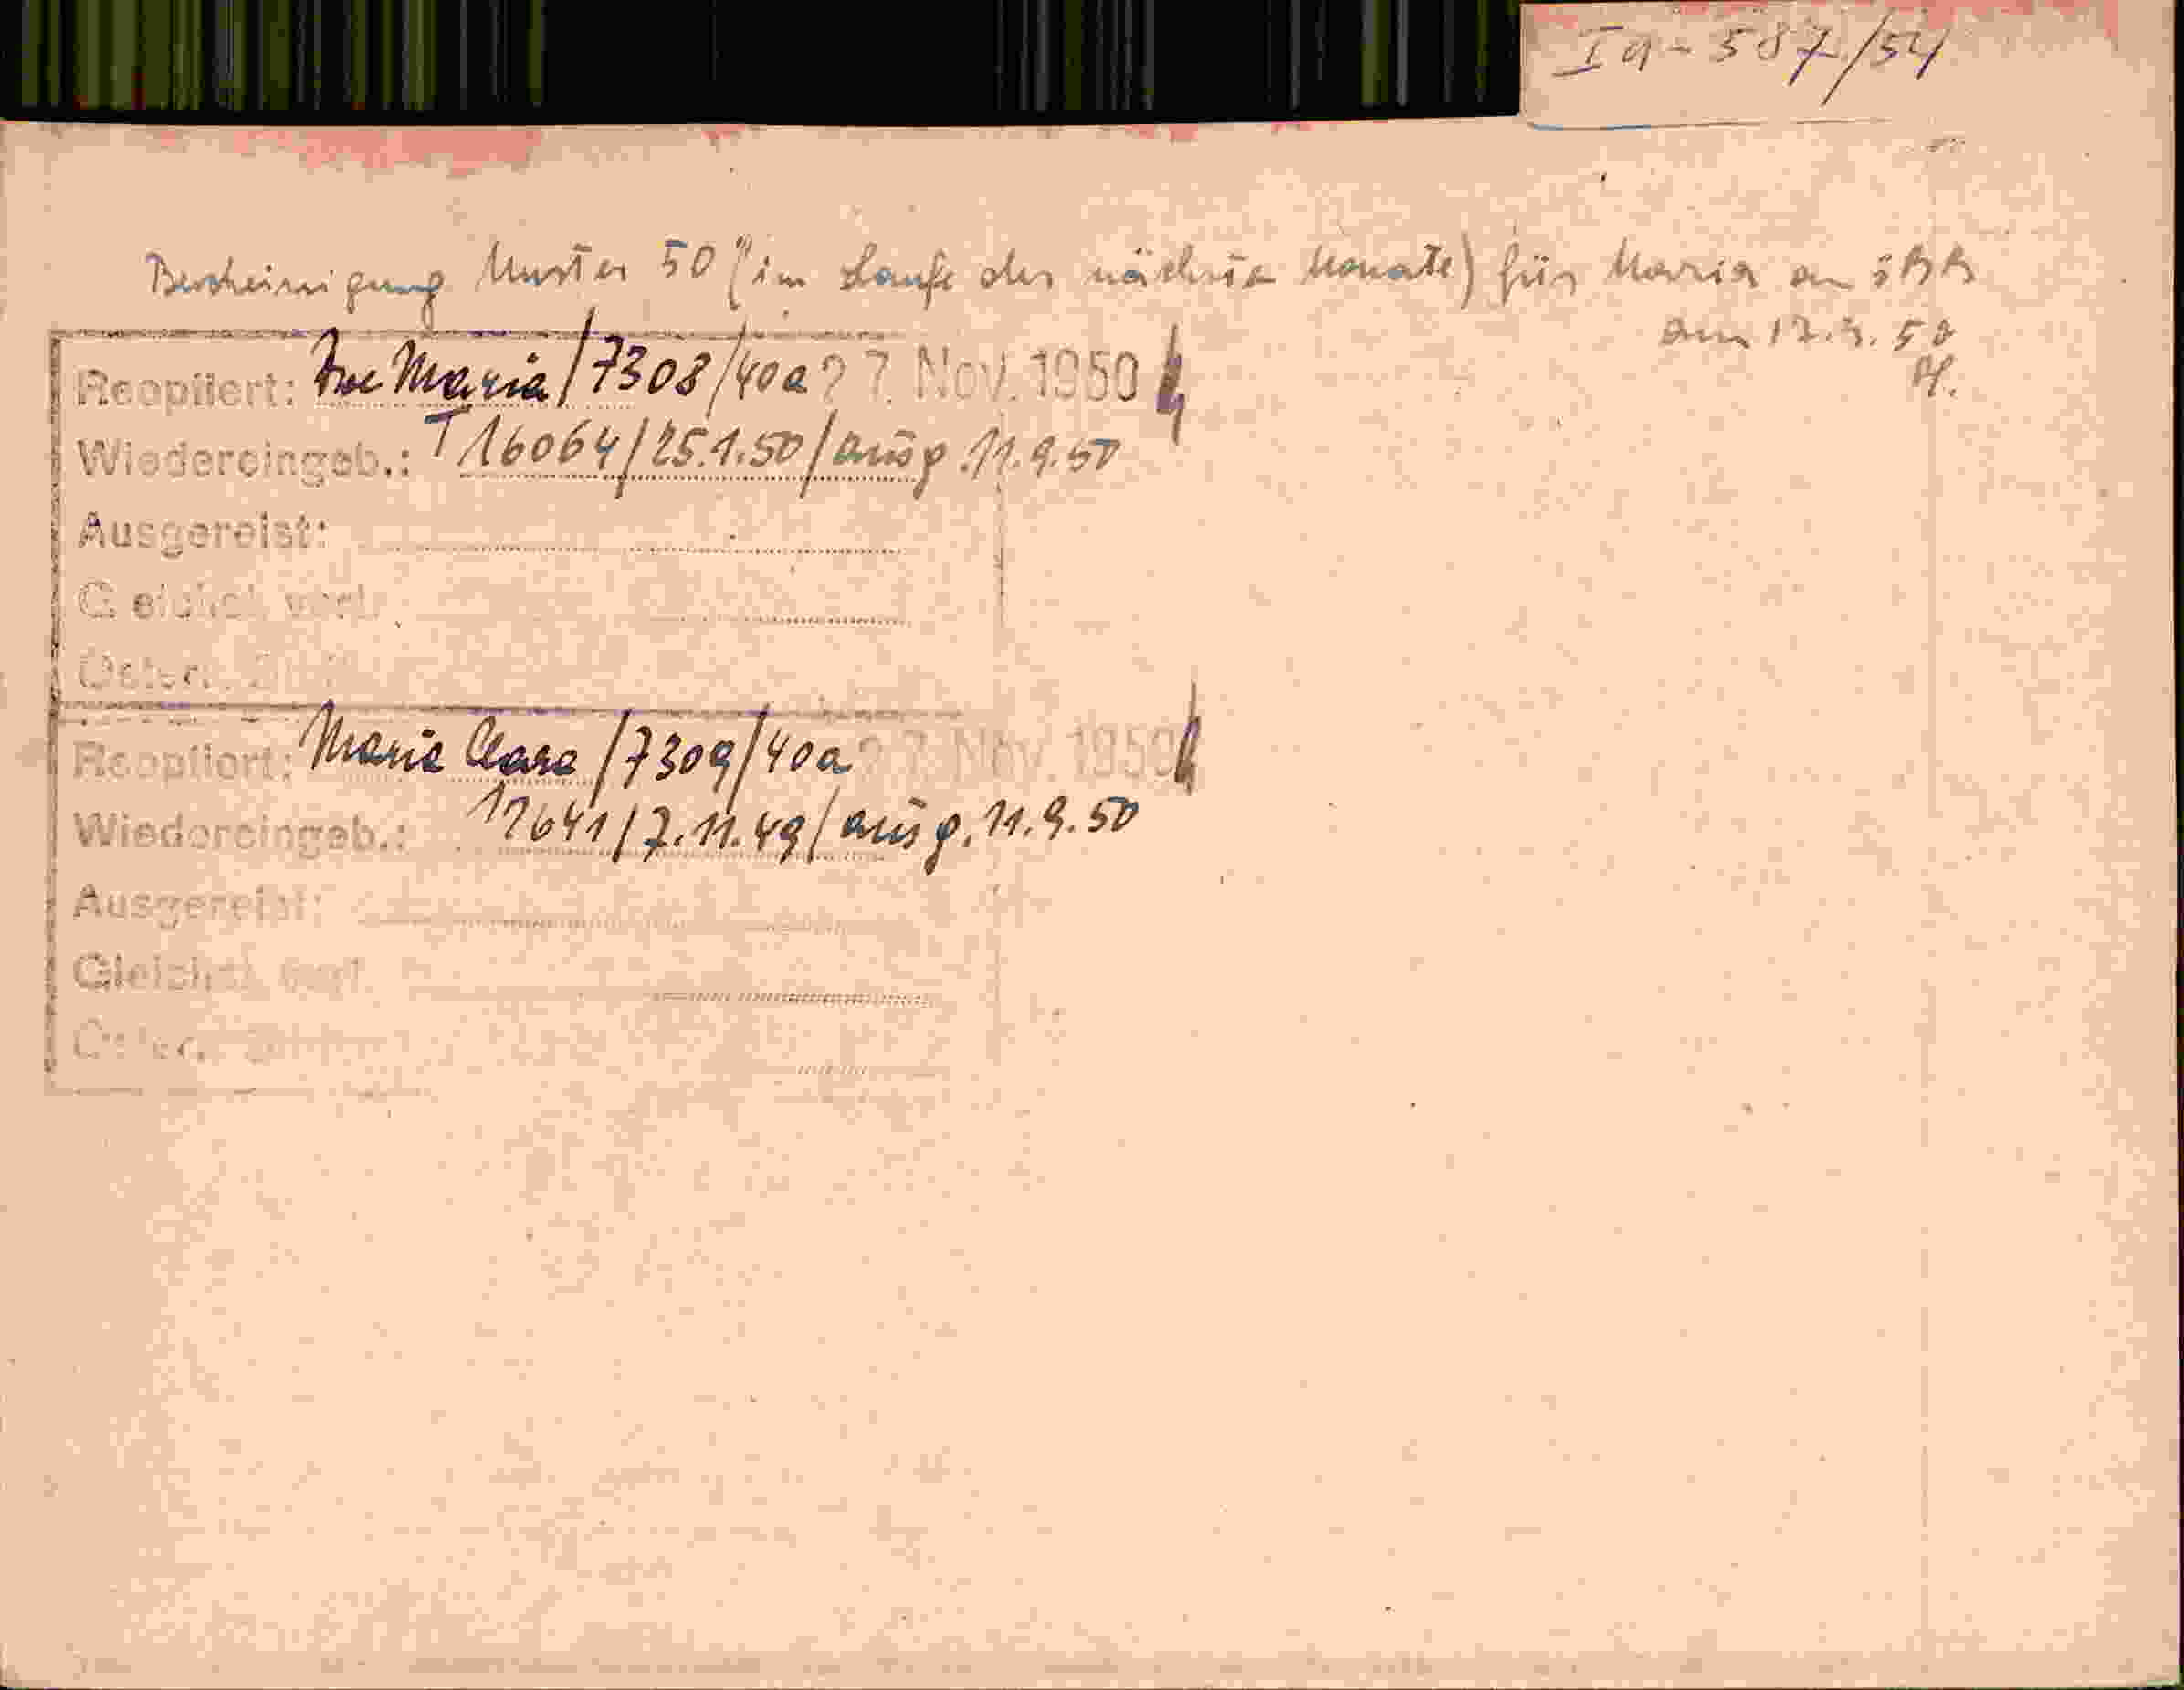 Ia - 587/54
Bescheinigung Muster 50 (im Laufe der nächsten Monate) für Maria an öBB
am 17.3.50
Reopiiert: Maria / 7308 / 40a 27. Nov. 1950
Wiedereingeb.: T 16064 / 25.1.50 / ausg. 11.9.50
Ausgereist:
Gleichst. verl.
Österr.
Reopiiert: Maria Clara / 7309 / 40a 27. Nov. 1950
Wiedereingeb.: 12641 / 7.11.49 / ausg. 11.9.50
Ausgereist:
Gleichst. verl.
Österr.